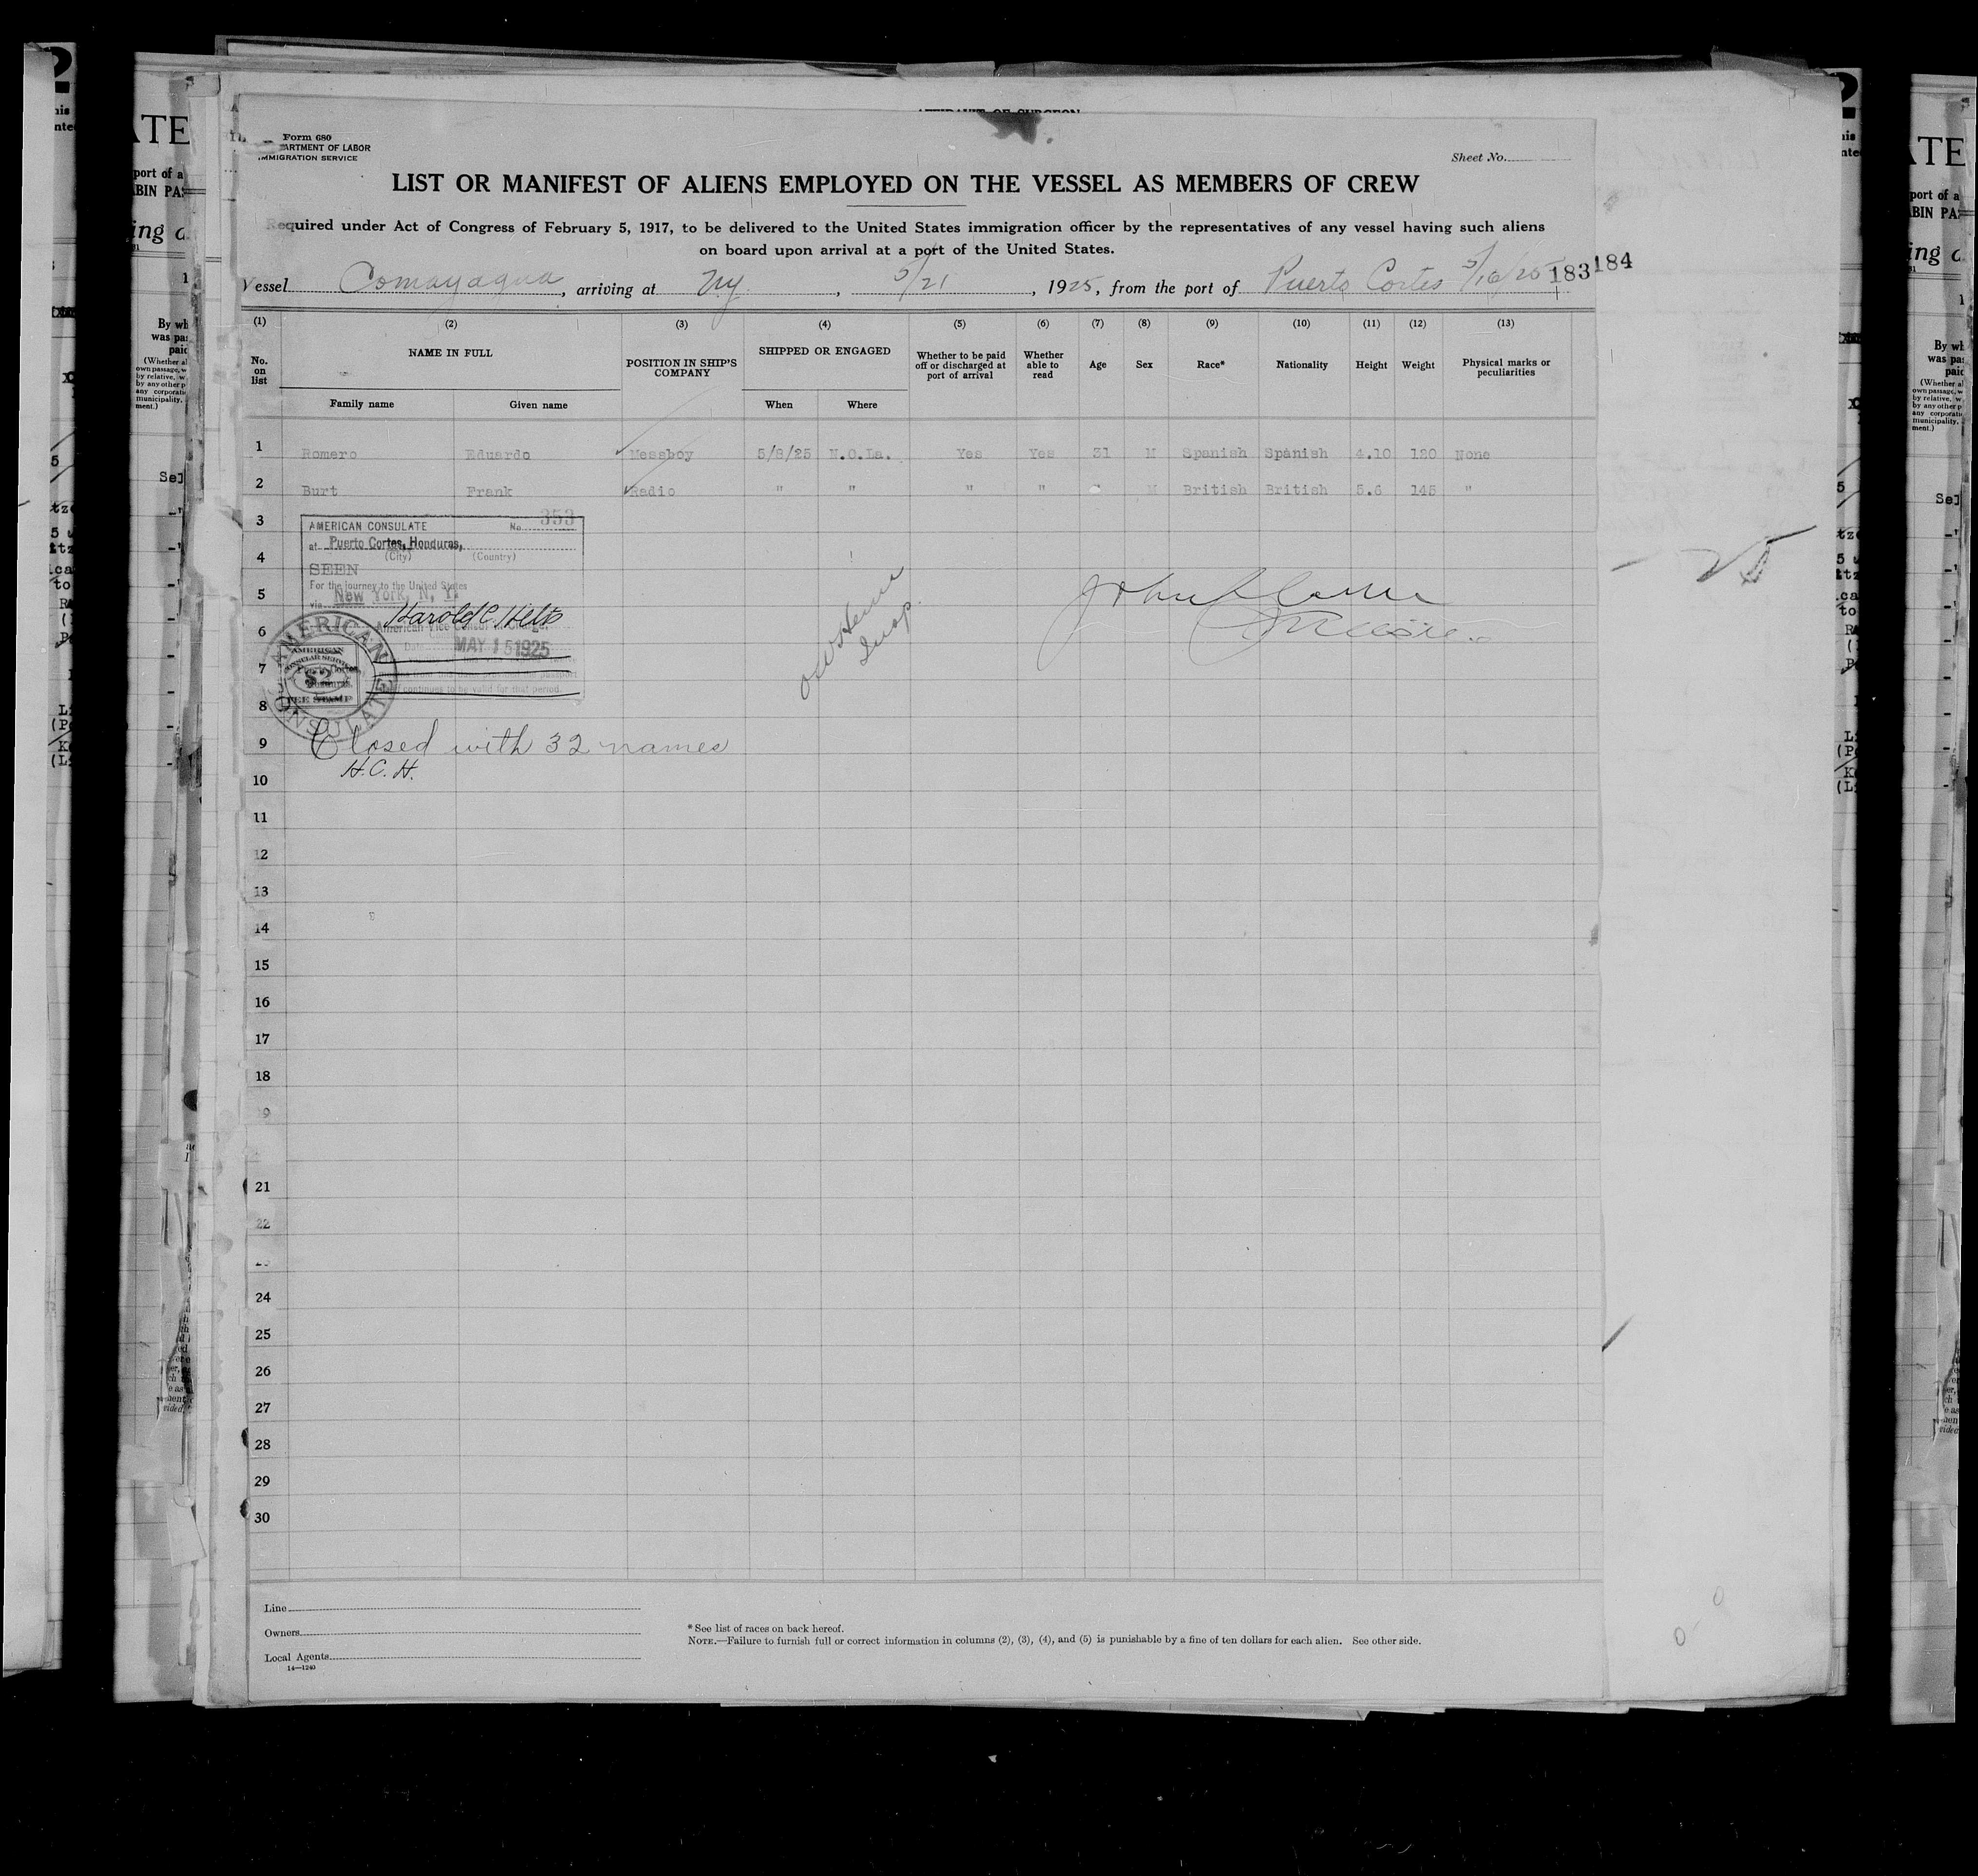 Form 680
IMMIGRATION SERVICE
Sheet No.
LIST OR MANIFEST OF ALIENS EMPLOYED ON THE VESSEL AS MEMBERS OF CREW
Required under Act of Congress of February 5, 1917, to be delivered to the United States immigration officer by the representatives of any vessel having such aliens
on board upon arrival at a port of the United States.
Vessel Comayagua, arriving at Ny, 5/21, 1925, from the port of Puerto Cortes 5/16/25 183 184
(1) (2) (3) (4) (5) (6) (7) (8) (9) (10) (11) (12) (13)
No. on list NAME IN FULL POSITION IN SHIP'S COMPANY SHIPPED OR ENGAGED Whether to be paid off or discharged at port of arrival Whether able to read Age Sex Race* Nationality Height Weight Physical marks or peculiarities
Family name Given name When Where
1 Romero Eduardo Messboy 5/8/25 N.O.La. Yes Yes 31 M Spanish Spanish 4.10 120 None
2 Burt Frank Radio " " " " M British British 5.6 145 "
3
AMERICAN CONSULATE No. 353
at Puerto Cortes, Honduras,
(City) (Country)
4
SEEN
For the journey to the United States
5
via New York, N. Y.
6
American Vice Consul in Charge.
Date MAY 15 1925
7
continues to be valid for that period.
AMERICAN CONSULATE
AMERICAN
CONSULAR SERVICE
$2
FEE STAMP
8
9 Closed with 32 names
H.C.H.
10
11
12
13
14
15
16
17
18
19
21
22
24
25
26
27
28
29
30
Line
Owners
Local Agents
14—1240
* See list of races on back hereof.
NOTE.—Failure to furnish full or correct information in columns (2), (3), (4), and (5) is punishable by a fine of ten dollars for each alien. See other side.